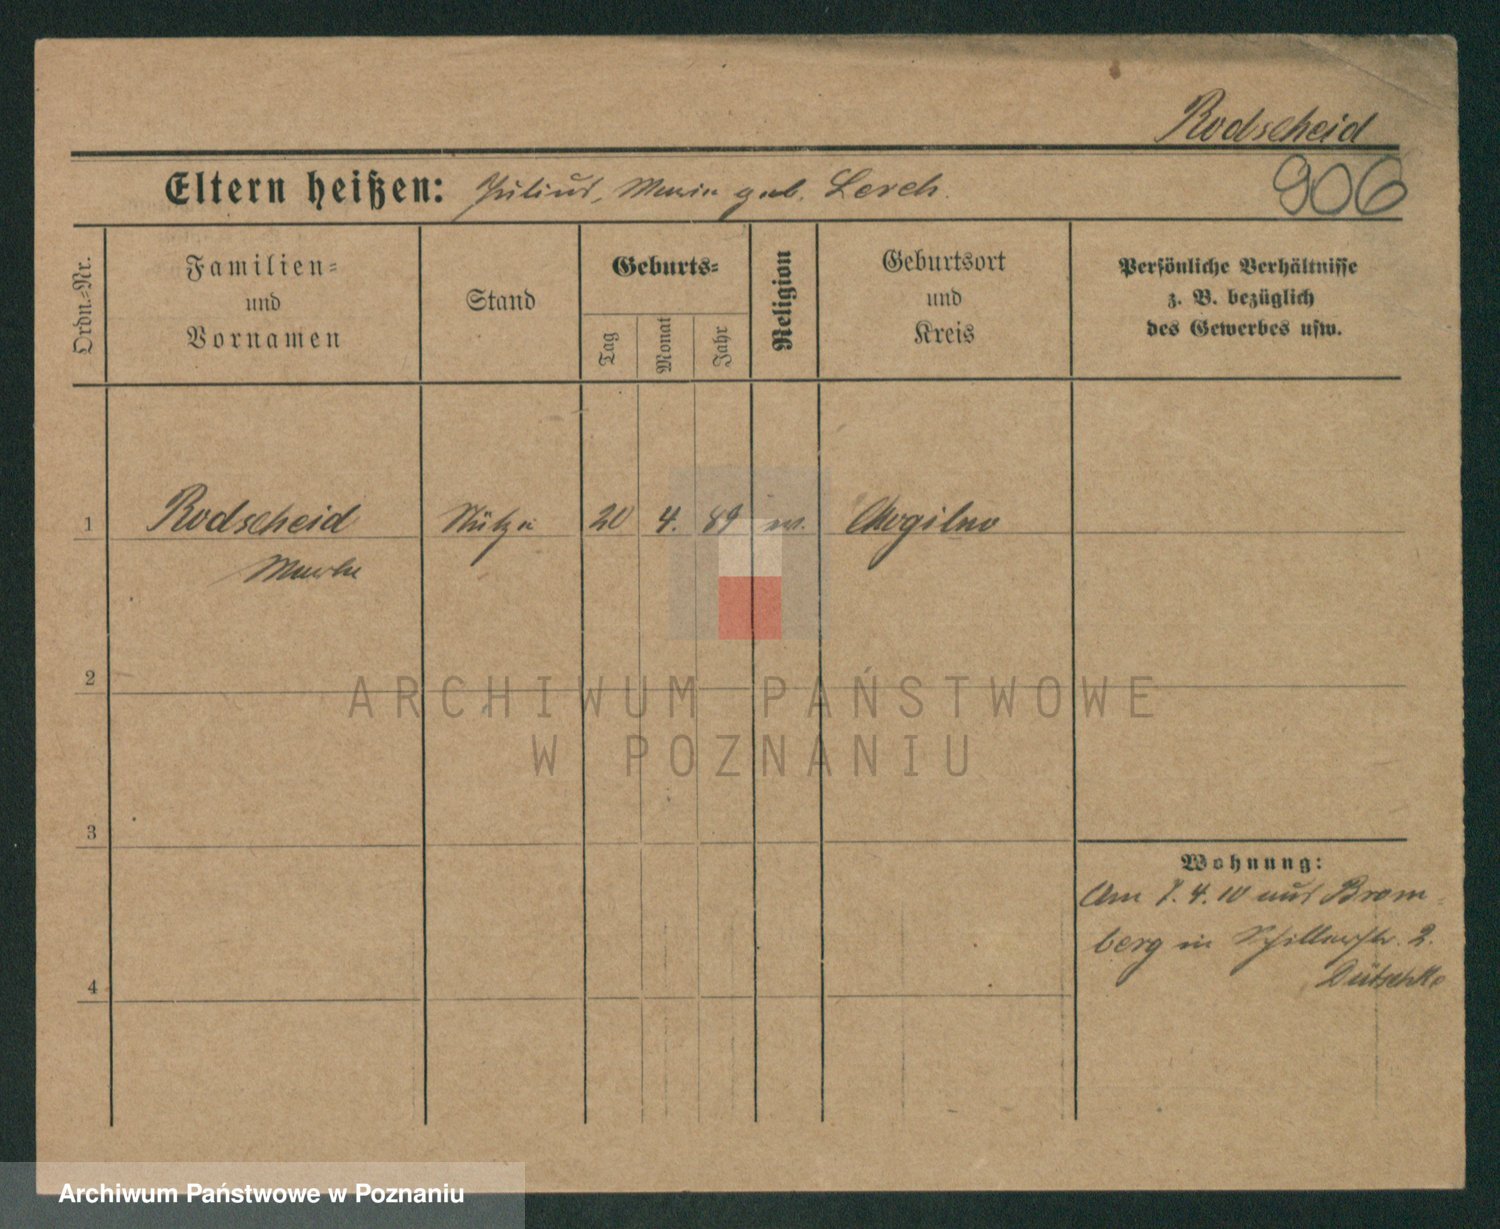 Rodscheid
906
Eltern heißen: Julius, Maria geb. Lerch.
Ordn.=Nr.
Familien=
und
Vornamen
Stand
Geburts=
Tag
Monat
Jahr
Religion
Geburtsort
und
Kreis
Persönliche Verhältnisse
z. B. bezüglich
des Gewerbes usw.
1 Rodscheid Stütze 20 4. 89 Mogilno
2
3
4
Wohnung:
Am 7. 4. 10 aus Brom-
berg in Schillerstr. 2.
ARCHIWUM PAŃSTWOWE
W POZNANIU
Archiwum Państwowe w Poznaniu